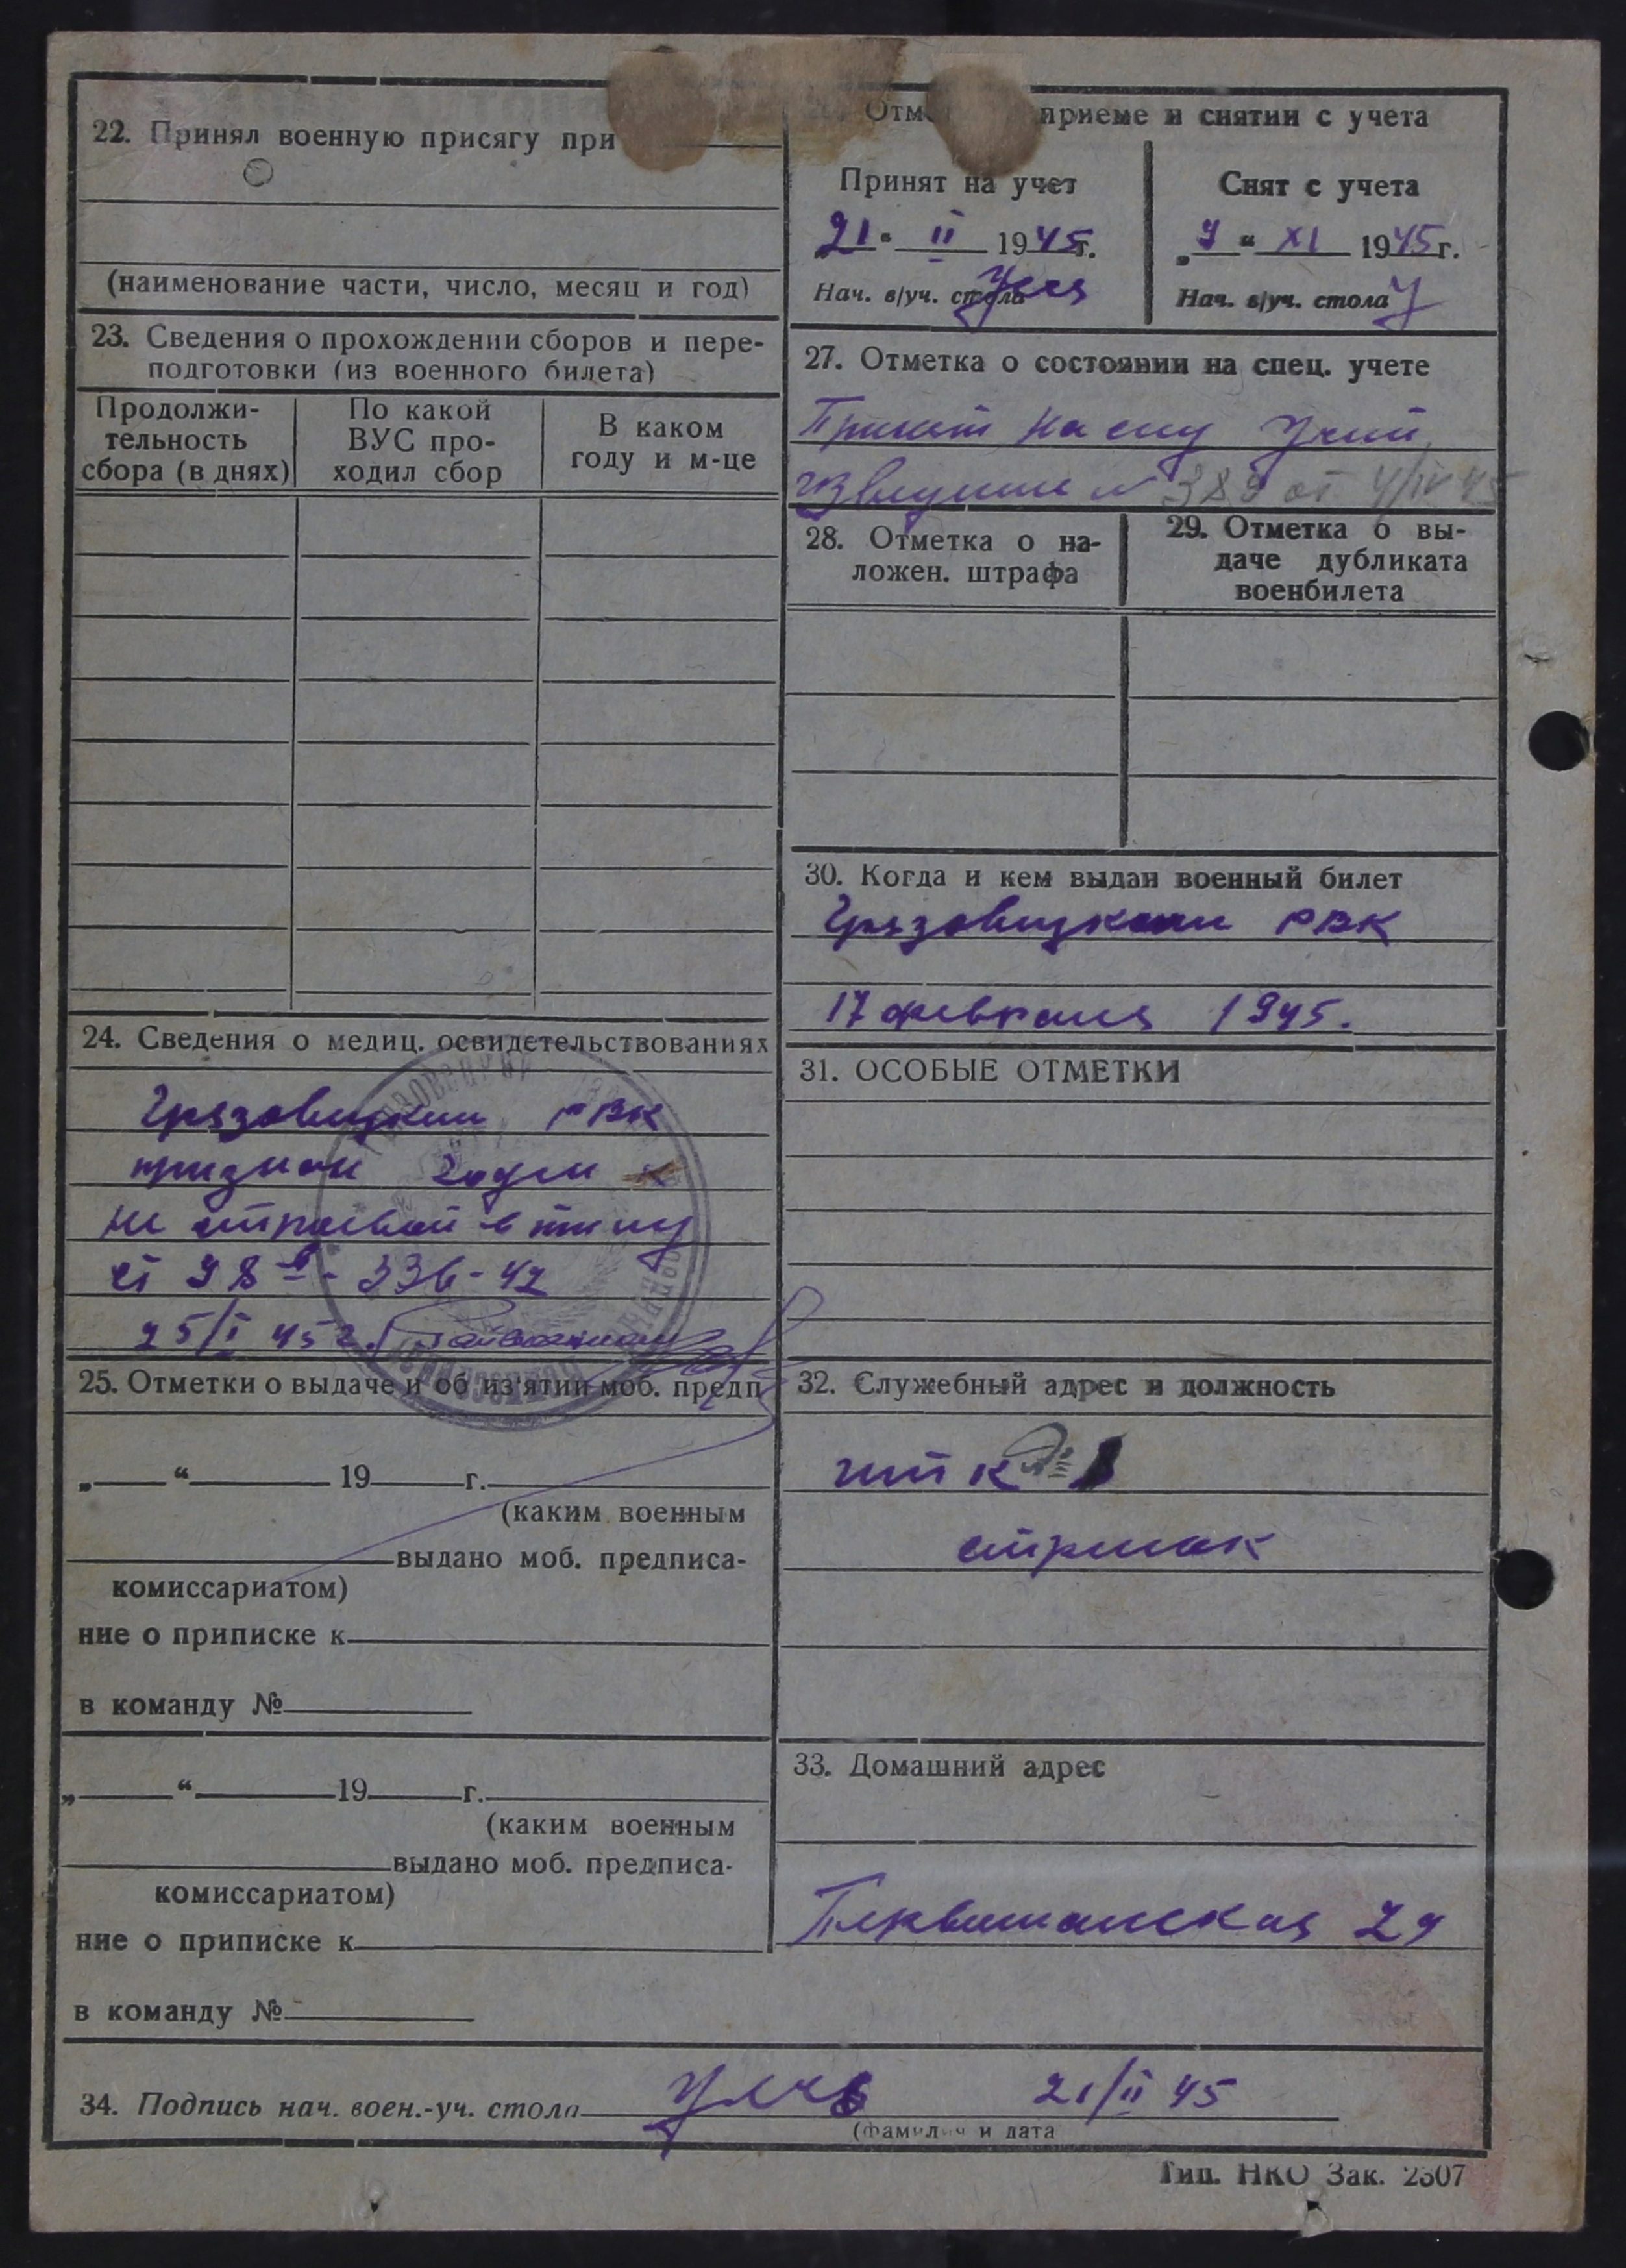 22. Принял военную присягу при
(наименование части, число, месяц и год)
23. Сведения о прохождении сборов и пере-
подготовки (из военного билета)
Продолжи-
тельность
сбора (в днях)
По какой
ВУС про-
ходил сбор
В каком
году и м-це
24. Сведения о медиц. освидетельствованиях
Грязовецким РВК
признан годен к
не строевой в тылу
ст 98 - 336-42
25/I 45 г.
25. Отметки о выдаче и об из'ятии моб. предп
„ “ 19 г.
(каким военным
выдано моб. предписа-
комиссариатом)
ние о приписке к
в команду №
„ “ 19 г.
(каким военным
выдано моб. предписа-
комиссариатом)
ние о приписке к
в команду №
приеме и снятии с учета
Принят на учет
21 “ II 1945г.
Нач. в/уч. стола
Снят с учета
„ “ XI 1945г.
Нач. в/уч. стола
27. Отметка о состоянии на спец. учете
Принят на спец учет
извещение № 389 от 4/IV 45
28. Отметка о на-
ложен. штрафа
29. Отметка о вы-
даче дубликата
военбилета
30. Когда и кем выдан военный билет
Грязовецким РВК
17 февраля 1945.
31. ОСОБЫЕ ОТМЕТКИ
32. Служебный адрес и должность
стрелок
33. Домашний адрес
34. Подпись нач. воен.-уч. стола 21/II 45
(Фамилия и дата
Тип. НКО Зак. 2307